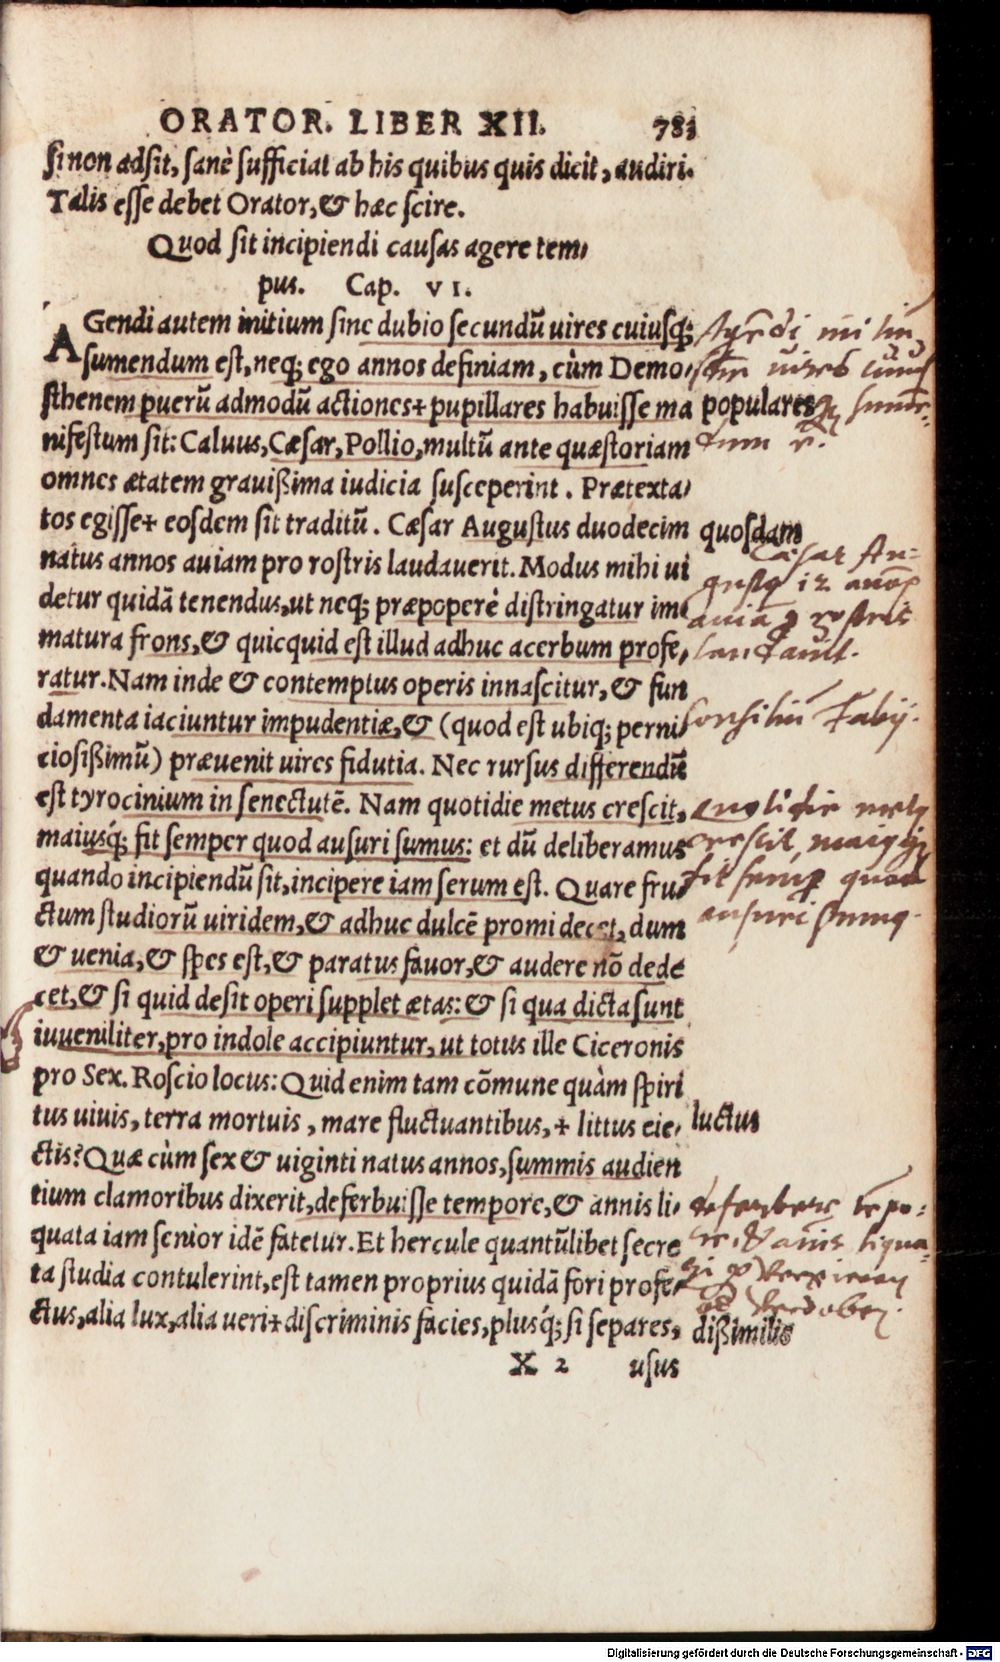 ORATOR. LIBER XII. 783
si non adsit, sanè sufficiat ab his quibus quis dicit, audiri.
Talis esse debet Orator, & hæc scire.
Quod sit incipiendi causas agere tem-
pus. Cap. VI.
AGendi autem initium sine dubio secundū uires cuiusq;
sumendum est, neq; ego annos definiam, cùm Demo-
sthenem puerū admodū actiones+ pupillares habuisse ma
populares
nifestum sit: Caluus, Cæsar, Pollio, multū ante quæstoriam
omnes ætatem grauißima iudicia susceperint. Prætexta-
tos egisse+ eosdem sit traditū. Cæsar Augustus duodecim
quosdam
natus annos auiam pro rostris laudauerit. Modus mihi ui
detur quidā tenendus, ut neq; præpoperè distringatur im-
matura frons, & quicquid est illud adhuc acerbum profe-
ratur. Nam inde & contemptus operis innascitur, & fun
damenta iaciuntur impudentiæ, & (quod est ubiq; perni-
ciosißimū) præuenit uires fidutia. Nec rursus differendū
est tyrocinium in senectutē. Nam quotidie metus crescit,
maiusq́; fit semper quod ausuri sumus: et dū deliberamus
quando incipiendū sit, incipere iam serum est. Quare fru-
ctum studiorū uiridem, & adhuc dulcē promi decet, dum
& uenia, & spes est, & paratus fauor, & audere nō dede
cet, & si quid desit operi supplet ætas: & si qua dicta sunt
iuueniliter, pro indole accipiuntur, ut totus ille Ciceronis
pro Sex. Roscio locus: Quid enim tam cōmune quàm spiri
tus uiuis, terra mortuis, mare fluctuantibus, + littus eie-
luctus
ctis? Quæ cùm sex & uiginti natus annos, summis audien
tium clamoribus dixerit, deferbuisse tempore, & annis li-
quata iam senior idē fatetur. Et hercule quantūlibet secre
ta studia contulerint, est tamen proprius quidā fori profe-
ctus, alia lux, alia ueri+ discriminis facies, plusq́; si separes,
dißimilis
X 2 usus
Agēdi initiū
uires
Cæsar Au-
gustꝰ 12 annos
auiā ꝓ rostris
laudauit.
Consiliū Fabij.
quotidie metꝰ
crescit, maiꝰqꝫ
fit semꝑ quod
ausuri sumꝰ.
deferbere tēpo-
re, & annis liqua-
Digitalisierung gefördert durch die Deutsche Forschungsgemeinschaft - DFG